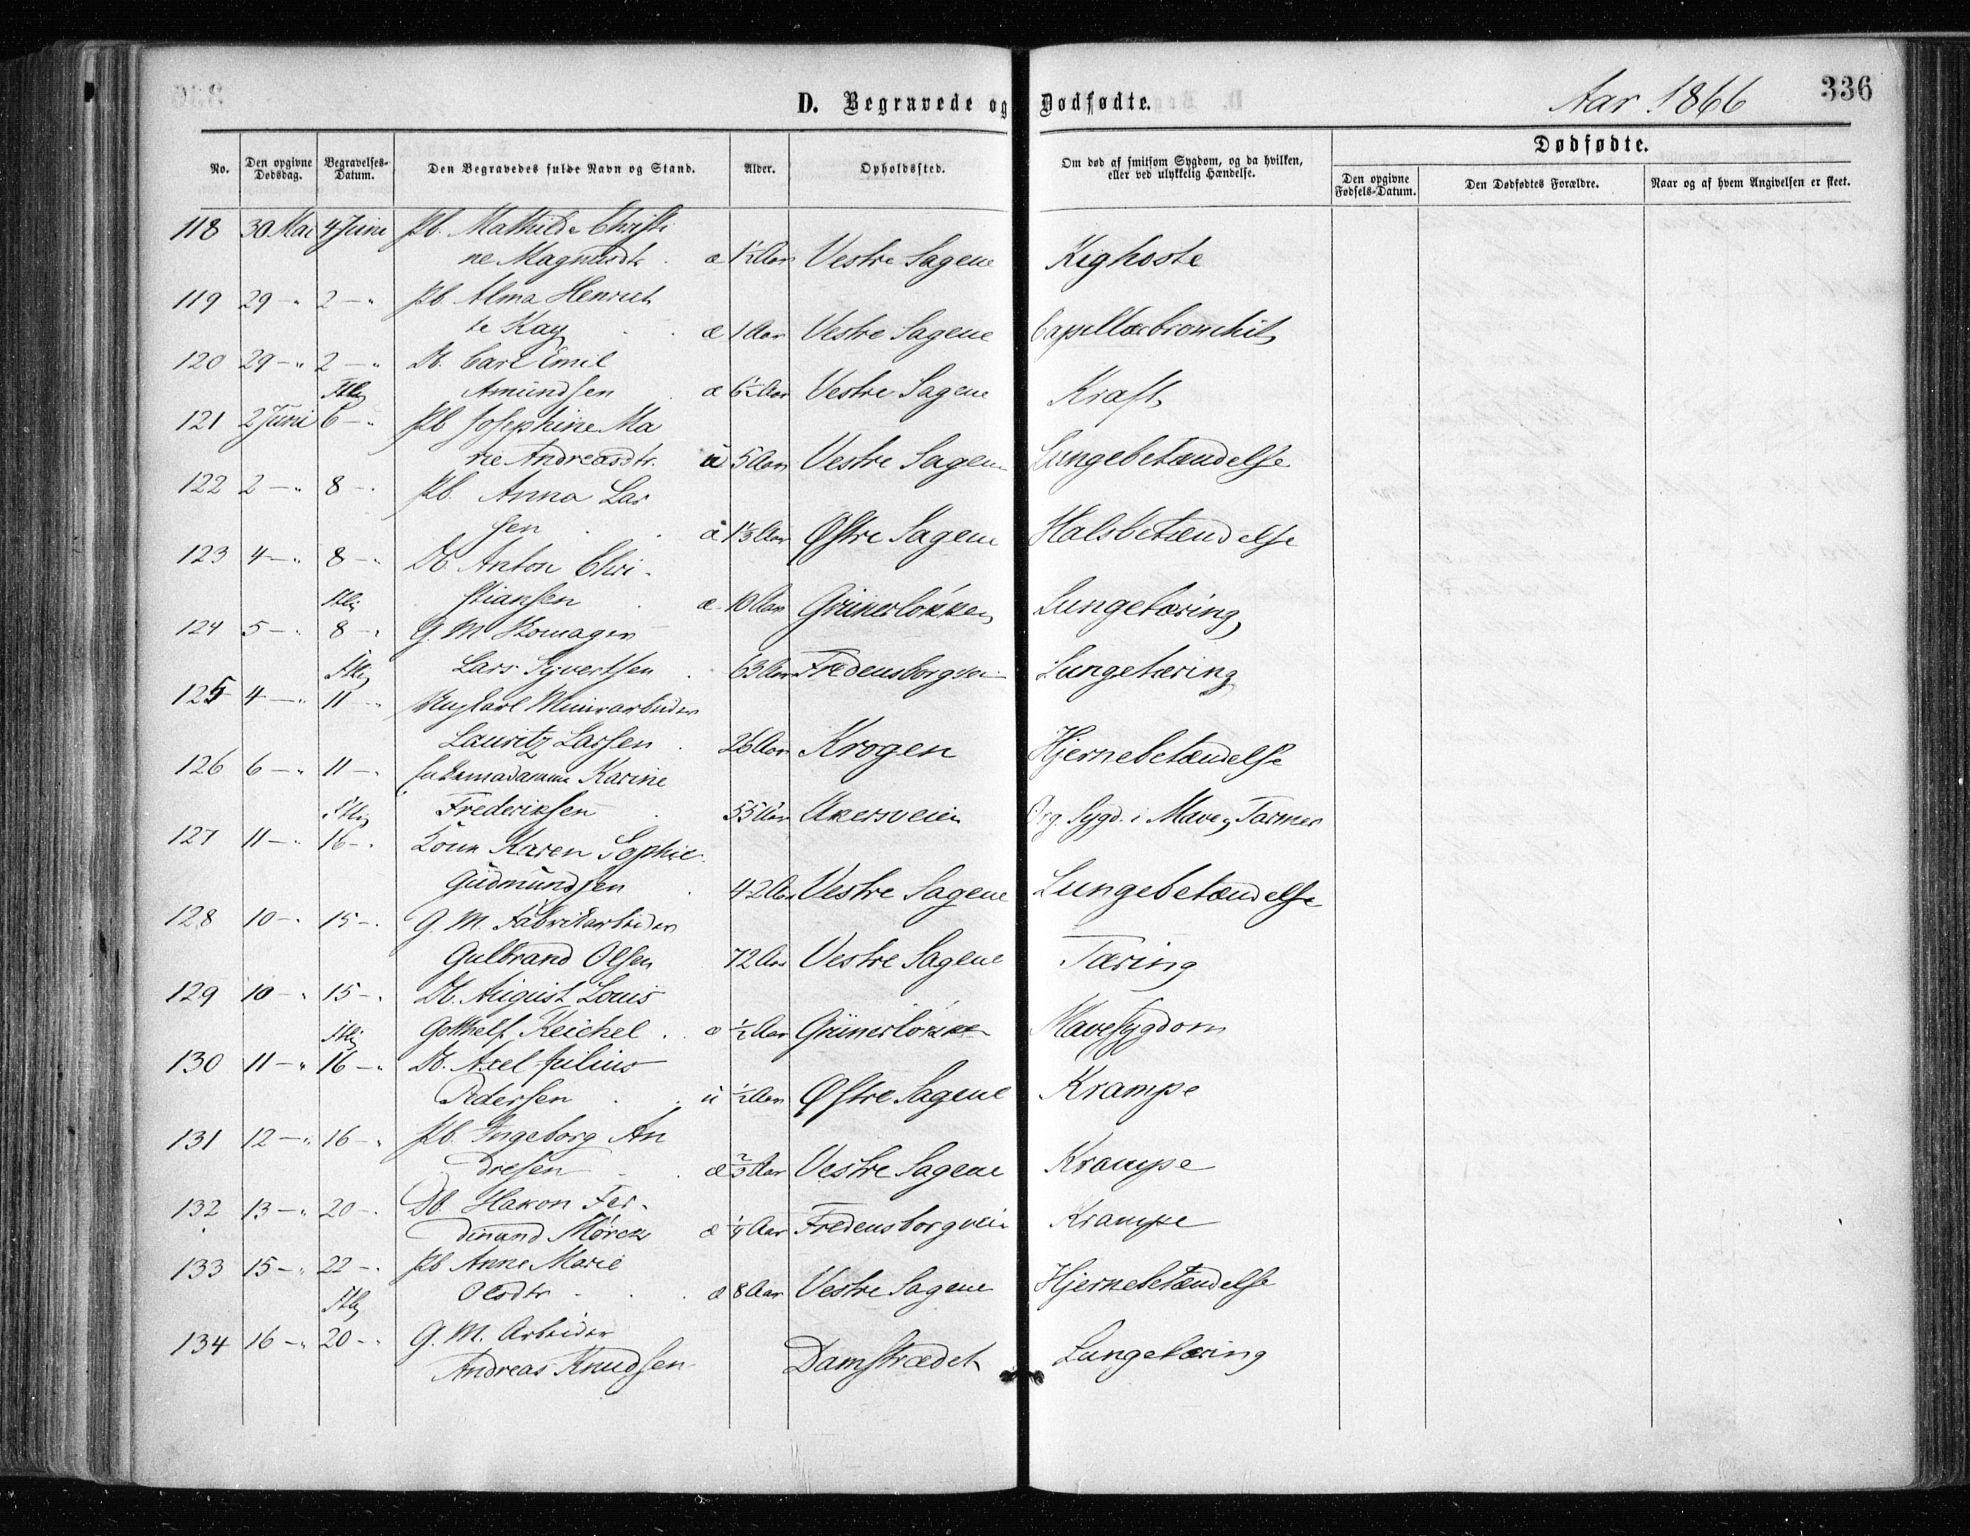 D. Begravede og Dødfødte.
Aar 1866
336
No.
Den opgivne Dødsdag.
Begravelses-Datum.
Den Begravedes fulde Navn og Stand.
Alder.
Opholdssted.
Om død af smitsom Sygdom, og da hvilken, eller ved ulykkelig Hændelse.
Dødfødte.
Den opgivne Fødsels-Datum.
Den Dødfødtes Forældre.
Naar og af hvem Angivelsen er skeet.
118 30 Mai 4 Juni Pb. Mathilde Christi
ne Magnusdtr. æ 1½ Aar Vestre Sagene Kighoste
119 29 -"- 2 -"- Pb. Alma Henriet
te Kay æ 1 Aar Vestre Sagene
120 29 -"- 2 -"- Db. Carl Emil
Amundsen æ 6½ Aar Vestre Sagene Kræft
121 2 Juni 6 -"- Pb. Josephine Ma
rie Andreasdtr. u 5 Aar Vestre Sagene Lungebetændelse
122 2 -"- 8 -"- Pb. Anna Lar
sen Østre Sagene Halsbetændelse
123 4 -"- 8 -"- Db. Anton Chri-
stiansen æ 10 Aar Grünerløkken Lungetæring
124 5 -"- 8 -"- G. M. Skomager
Lars Syvertsen 63 Aar Fredensborgvei Lungetæring
125 4 -"- 11 -"- Ungkarl Murarbeider
Lauritz Larsen 26 Aar Krogen Hjernebetændelse
126 6 -"- 11 -"- Karine
Frederiksen 55 Aar Akersveien Org. Sygd. i Mave og Tarmer
127 11 -"- 16 -"- Kone Karen Sophie
Gudmundsen 42 Aar Vestre Sagene Lungebetændelse
128 10 -"- 15 -"- G. M. Fabrikarbeider
Gulbrand Olsen 72 Aar Vestre Sagene Tæring
129 10 -"- 15 -"- Db. August Louis
Gotthelf Reichel æ ½ Aar Grünerløkken Mavesygdom
130 11 -"- 16 -"- Db. Axel Julius
Pedersen u ½ Aar Østre Sagene Krampe
131 12 -"- 16 -"- Pb. Ingeborg An
dresen æ ⅔ Aar Vestre Sagene Krampe
132 13 -"- 20 -"- Db. Hakon Fer-
dinand Mørck æ Aar Fredensborgvei Krampe
133 15 -"- 22 -"- Pb. Anne Marie
Olsdtr æ 8 Aar Vestre Sagene Hjernebetændelse
134 16 -"- 20 -"- G. M. Arbeider
Andreas Knudsen Damstrædet Lungetæring